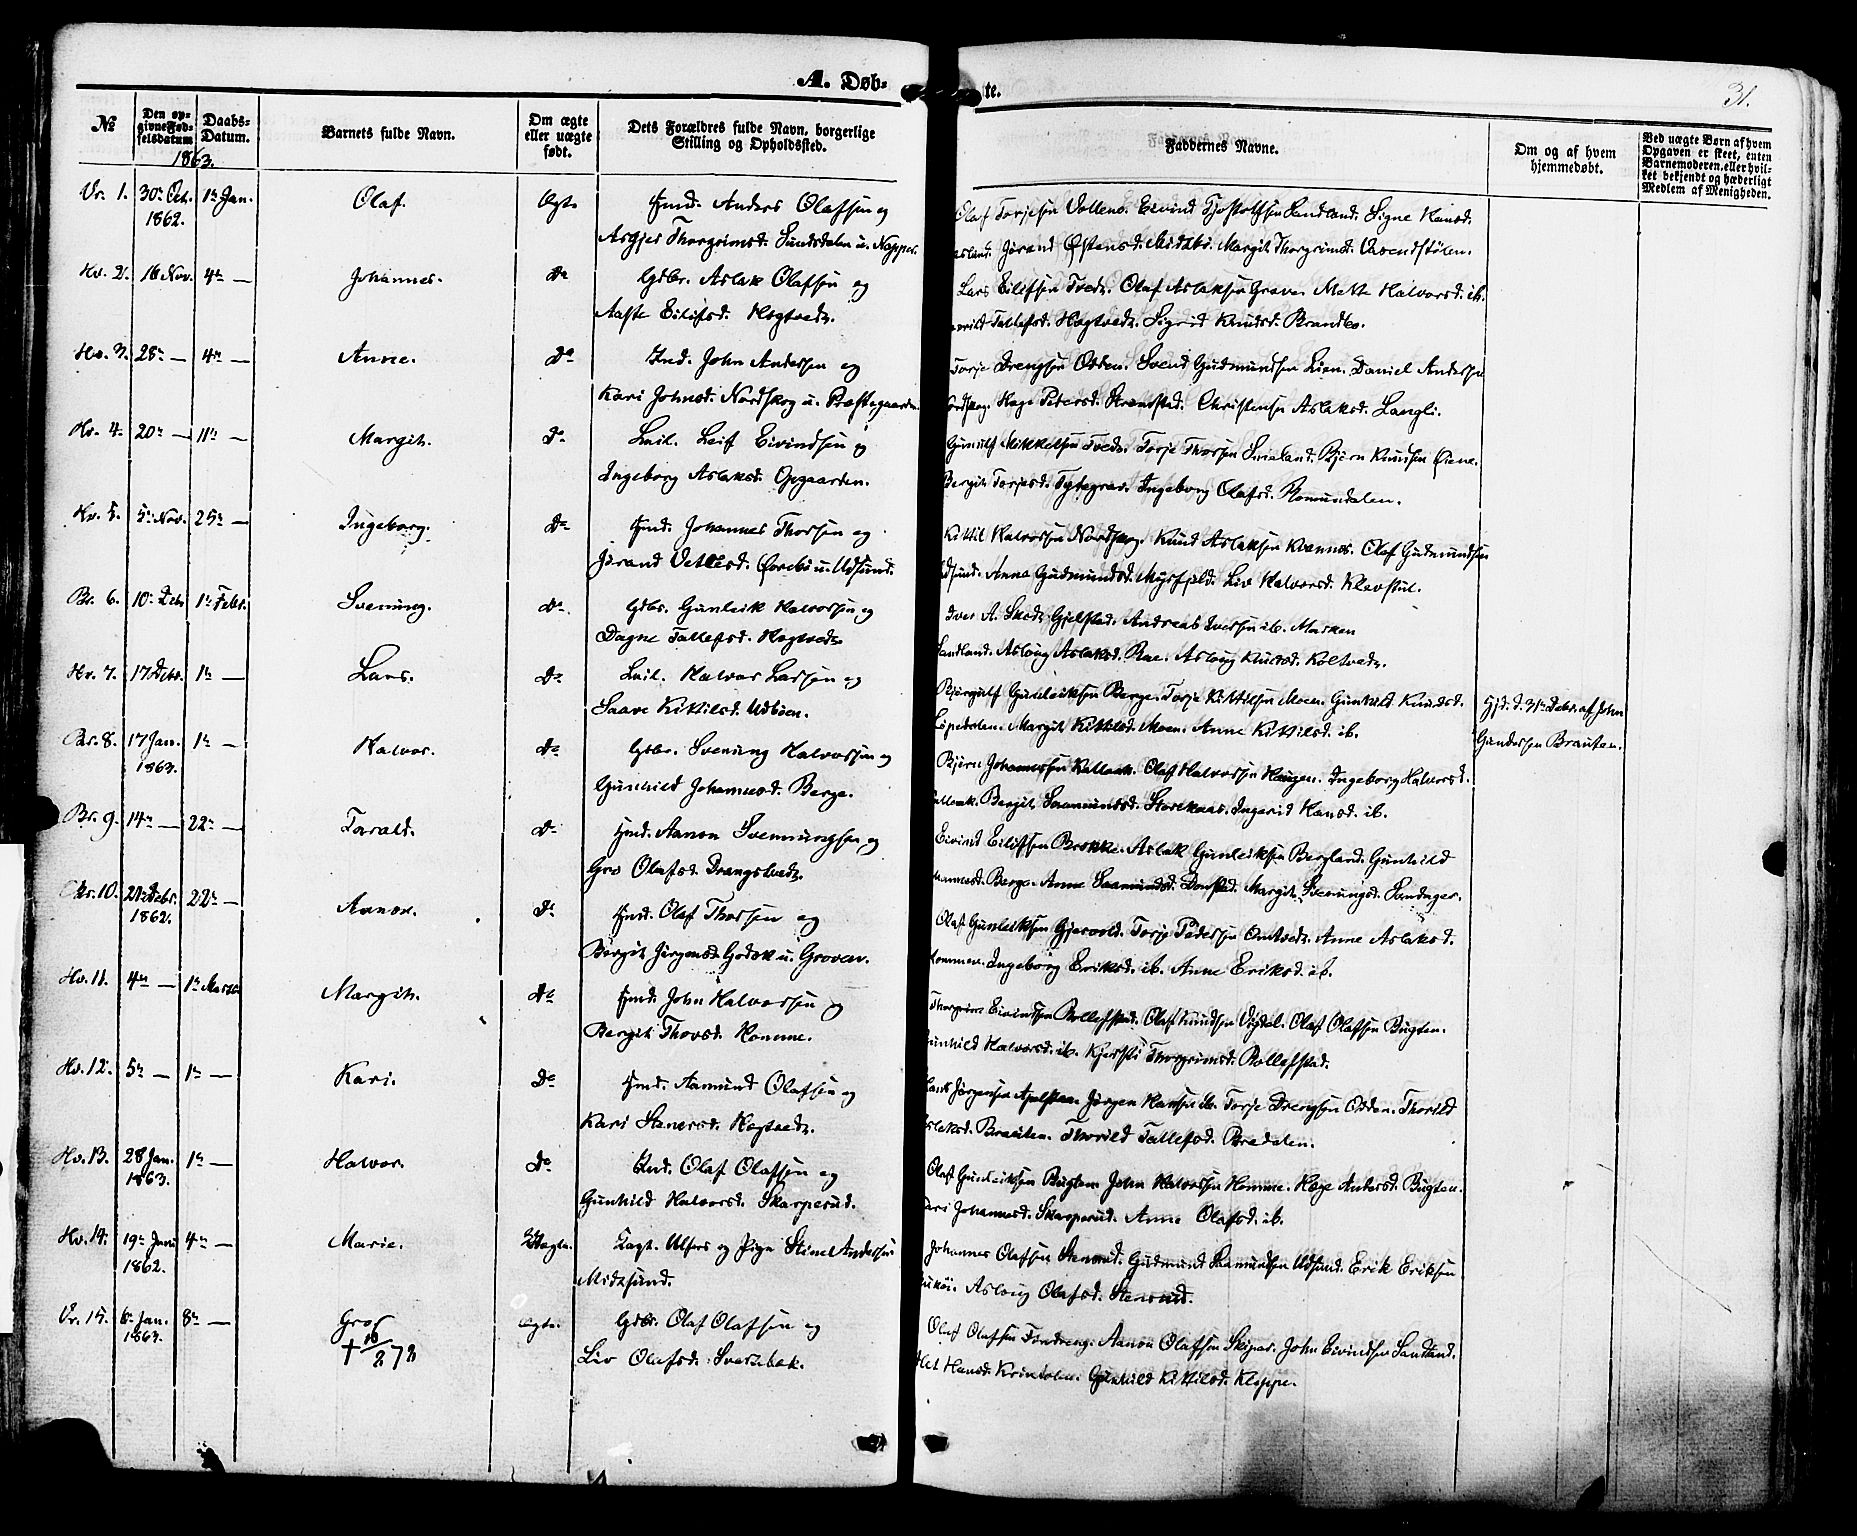 A. Døb-
te.
31.
№
Den op-
givne Fød-
selsdatum
Daabs-
Datum.
Barnets fulde Navn.
Om ægte
eller uægte
født.
Dets Forældres fulde Navn, borgerlige
Stilling og Opholdssted.
Faddernes Navne.
Om og af hvem
hjemmedøbt.
Ved uægte Børn af hvem
Opgaven er skeet, enten
Barnemoderen, eller hvil-
ket bekjendt og hæderligt
Medlem af Menigheden.
1863.
Vr. 1. 30te Oct. 1te Jan. Olaf. Ægte Hmd. Anders Olafsen og
1862.
Asgjer Thorgrimsd. Sundsdalen u. Nopper.
Olaf Torjesen Vollene. Eivind Tjostolfsen Sundland. Signe Hansd.
Jorand Østensd. Midtbø. Margit Thorgrimsd. Vasendstølen.
Hv. 2. 16 Nov. 4de — Johannes. Do Gdbr. Aslak Olafsen og
Aaste Eilifsd. Høgtvedt.
Lars Eilifsen Tvedt. Olaf Aslaksen Grave. Mette Halvorsd. ib.
Tallefsd. Høgtvedt. Sigrid Knudsd. Brandbø.
Hv. 3. 28de — 4de — Anne. Do Ind. John Andersen og
Kari Johnsd. Nordskog u. Præstegaarden
Torje Drengsen Odden. Svend Gudmundsen Lien. Daniel Andersen
Nordskog. Hæge Petersd. Strandstad. Christense Aslaksd. Langli.
Hv. 4. 20de — 11te — Margit. Do Leil. Leif Eivindsen og
Ingeborg Aslaksd. Opgaarden.
Gunulf Mikkelsen Tvedt. Torje Thorsen Smeland. Bjørn Knudsen Øiene.
Bergit Torjesd. Tytegrav. Ingeborg Olafsd. Romundalen.
Hv. 5. 5te Nov. 25de — Ingeborg. Do Hmd. Johannes Thorsen og
Jorand Vetlesd. Øvrebø u. Udsund.
Kittil Halvorsen Nordskog. Knud Aslaksen Kvennos. Olaf Gudmundsen
Udsund. Anne Gudmundsd. Myrfjeld. Liv Halvorsd. Klevstul.
Br. 6. 10de Debr. 1te Febr. Svenung. Do. Gdbr. Gunleik Halvorsen og
Dagne Tallefsd. Høgtvedt
Iver A. Skedt. Gjelstad. Andreas Iversen ib. Marken
Sandland. Aslaug Aslaksd. Roe. Aslaug Knudsd. Koltvedt.
Hv. 7. 17 Debr. 1te — Lars. Do Leil. Halvor Larsen og
Saave Kittilsd. Udbøen.
Bjørgulf Gunleiksen Berge. Torje Kittilsen Moen. Gunhild Knudsd.
Margit Kittilsd. Moen. Anne Kittilsd. ib.
Hjd. d. 31te Debr. af John
Gundersen Brauten.
Br. 8. 17 Jan. 1te — Halvor. Do Gdbr. Svenung Halvorsen og
1863.
Gunhild Johannesd. Berge.
Bjørn Johannessen Kalleak. Olaf Halvorsen Haugen. Ingeborg Halvorsd.
Kalleak. Bergit Saamundsd. Storeknes. Ingerid Hansd. ib.
Br. 9. 14de — 22de — Tarald. Do Hmd. Aanon Svennungsen og
Gro Olafsd. Drangstvedt.
Eivind Eilifsen Brokke. Aslak Gunleiksen Bergland. Gunhild
Johannesd. Berge. Anne Saamundsd. Donstad. Margit Svenungsd.
10. 21de Debr. 22de — Aanon. Do Hmd. Olaf Thorsen og
1862.
Birgit Jørgensd. Godok u. Groven.
Olaf Gunleiksen Gjervold. Torje Pedersen Omtvedt. Anne Aslaksd.
Hommen. Ingeborg Eriksd. ib. Anne Eriksd. ib.
Hv. 11. 4de — 1te Marts Margit. Do Hmd. John Halvorsen og
Bergit Thorsd. Homme.
Thorgrim Eivindsen Rollefstad. Olaf Knudsen Vigdal. Olaf Olafsen Bugten.
Gunhild Halvorsd. ib. Kjersti Thorgrimsd. Rollefstad.
Hv. 12. 5te — 1te — Kari. Do Hmd. Aamund Olafsen og
Kari Stenersd. Høgtvedt.
Jørgensen Apelstøen. Jørgen Hansen ib. Torje Drengsen Odden. Thorild
Aslaksd. Brauten. Thorild Tallefsd. Bredalen.
Hv. 13. 28 Jan. 1te — Halvor. Do Ind. Olaf Olafsen og
1863.
Gunhild Halvorsd. Skarperud.
Olaf Gunleiksen Bugten. John Halvorsen Homme. Hæge Andersd. Bugten.
Kari Johannesd. Skarperud. Anne Olafsd. ib.
Hv. 14. 19de Juni 4de — Marie. Uægte. Ulfers og Pige Stine Andersen
1862.
Midtsund.
Johannes Olafsen Stensrud. Gudmund Saamundsen Udsund. Erik Eriksen
Aslaug Olafsd. Stensrud.
Vr. 15. 6te Jan. 8de — Gro ægte. Gdbr. Olaf Olafsen og
1863. † 10/2 78
Liv Olafsd. Svartebek.
Olaf Olafsen Tondreng. Aanon Olafsen Skiper. John Eivindsen Sandland.
Hansd. Krintolen. Gunhild Kittilsd. Kloppe.